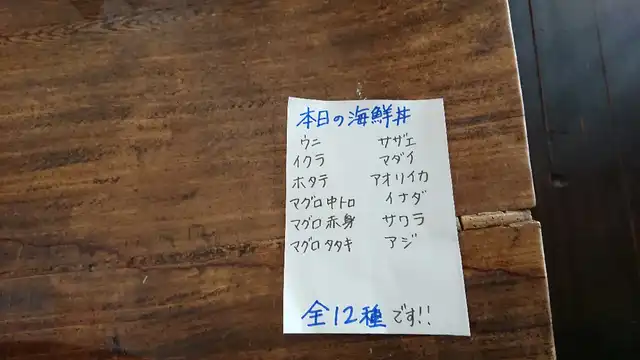 本日の海鮮丼
ウニ サザエ
イクラ マダイ
ホタテ アオリイカ
マグロ中トロ イナダ
マグロ赤身 サワラ
マグロタタキ アジ
全12種です!!